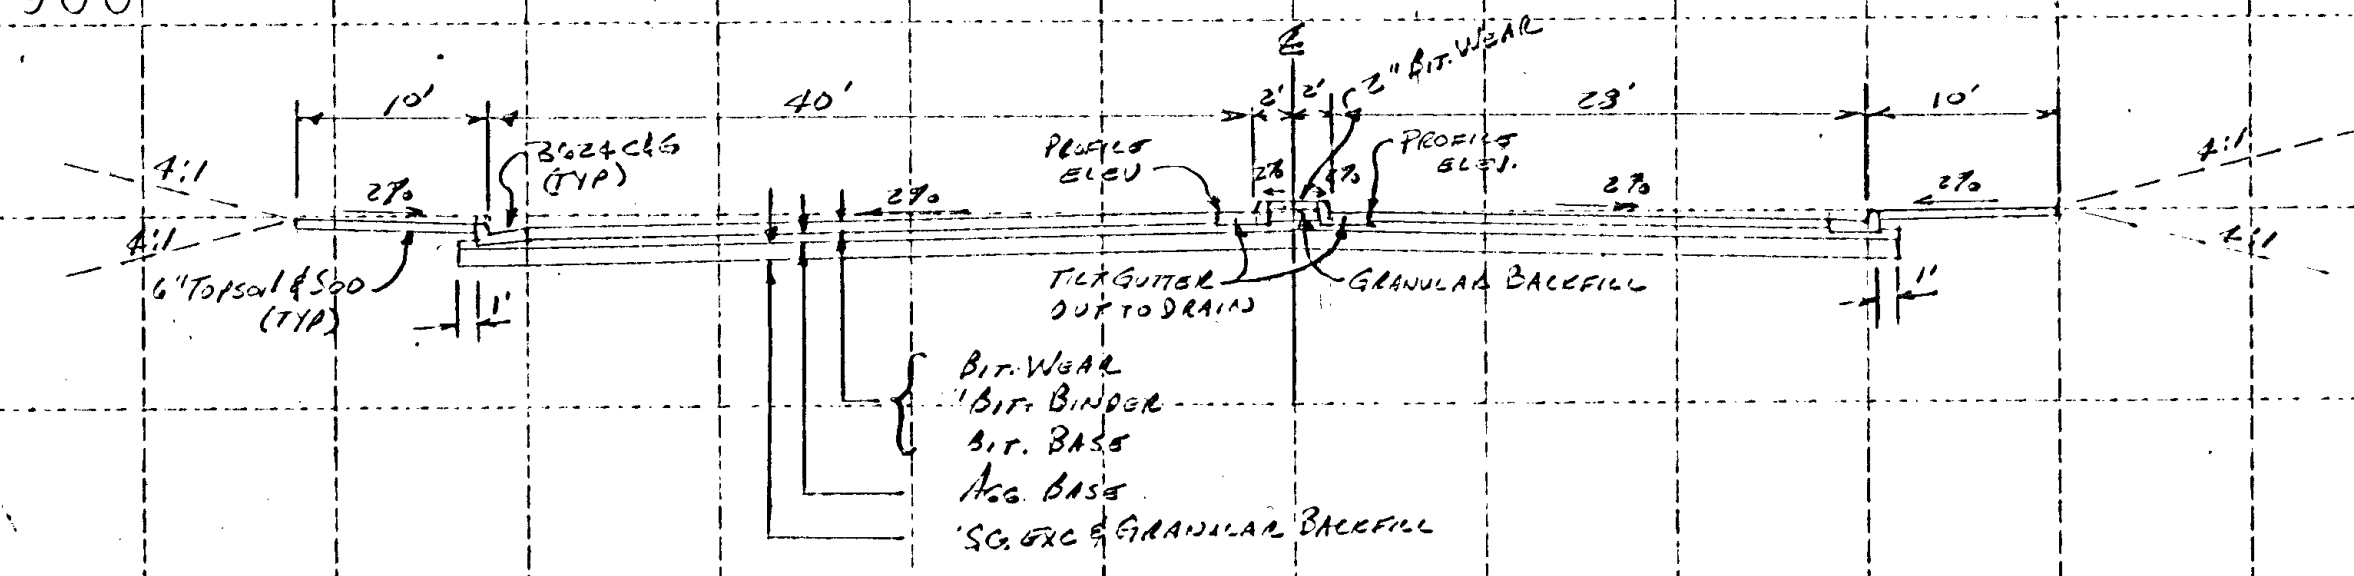 ℄
2" BIT. WEAR
10'
40'
2'
2'
28'
10'
B624 C&G
(TYP)
PROFILE
ELEV
PROFILE
ELEV.
4:1
2%
2%
2%
2%
2%
2%
4:1
4:1
4:1
6" TOPSOIL & SOD
(TYP)
1'
TILT GUTTER
OUT TO DRAIN
GRANULAR BACKFILL
1'
BIT. WEAR
BIT. BINDER
BIT. BASE
AGG. BASE
SG. EXC & GRANULAR BACKFILL